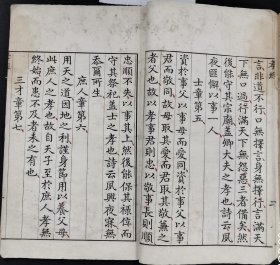 言非道不行口無擇言身無擇行言滿天
下無口過行滿天下無怨惡三者備矣然
後能守其宗廟蓋卿大夫之孝也詩云夙
夜匪懈以事一人
士章第五
資於事父以事母而愛同資於事父以事
君而敬同故母取其愛而君取其敬兼之
者父也故以孝事君則忠以敬事長則順
忠順不失以事其上然後能保其祿位而
守其祭祀蓋士之孝也詩云夙興夜寐無
忝爾所生
庶人章第六
用天之道因地之利謹身節用以養父母
此庶人之孝也故自天子至於庶人孝無
終始而患不及者未之有也
三才章第七